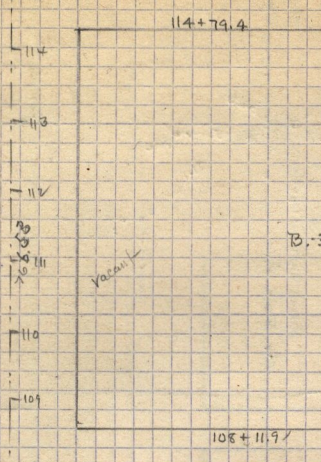 114+79.4
114
113
112
B.-3
111
vacant
110
109
108+11.9